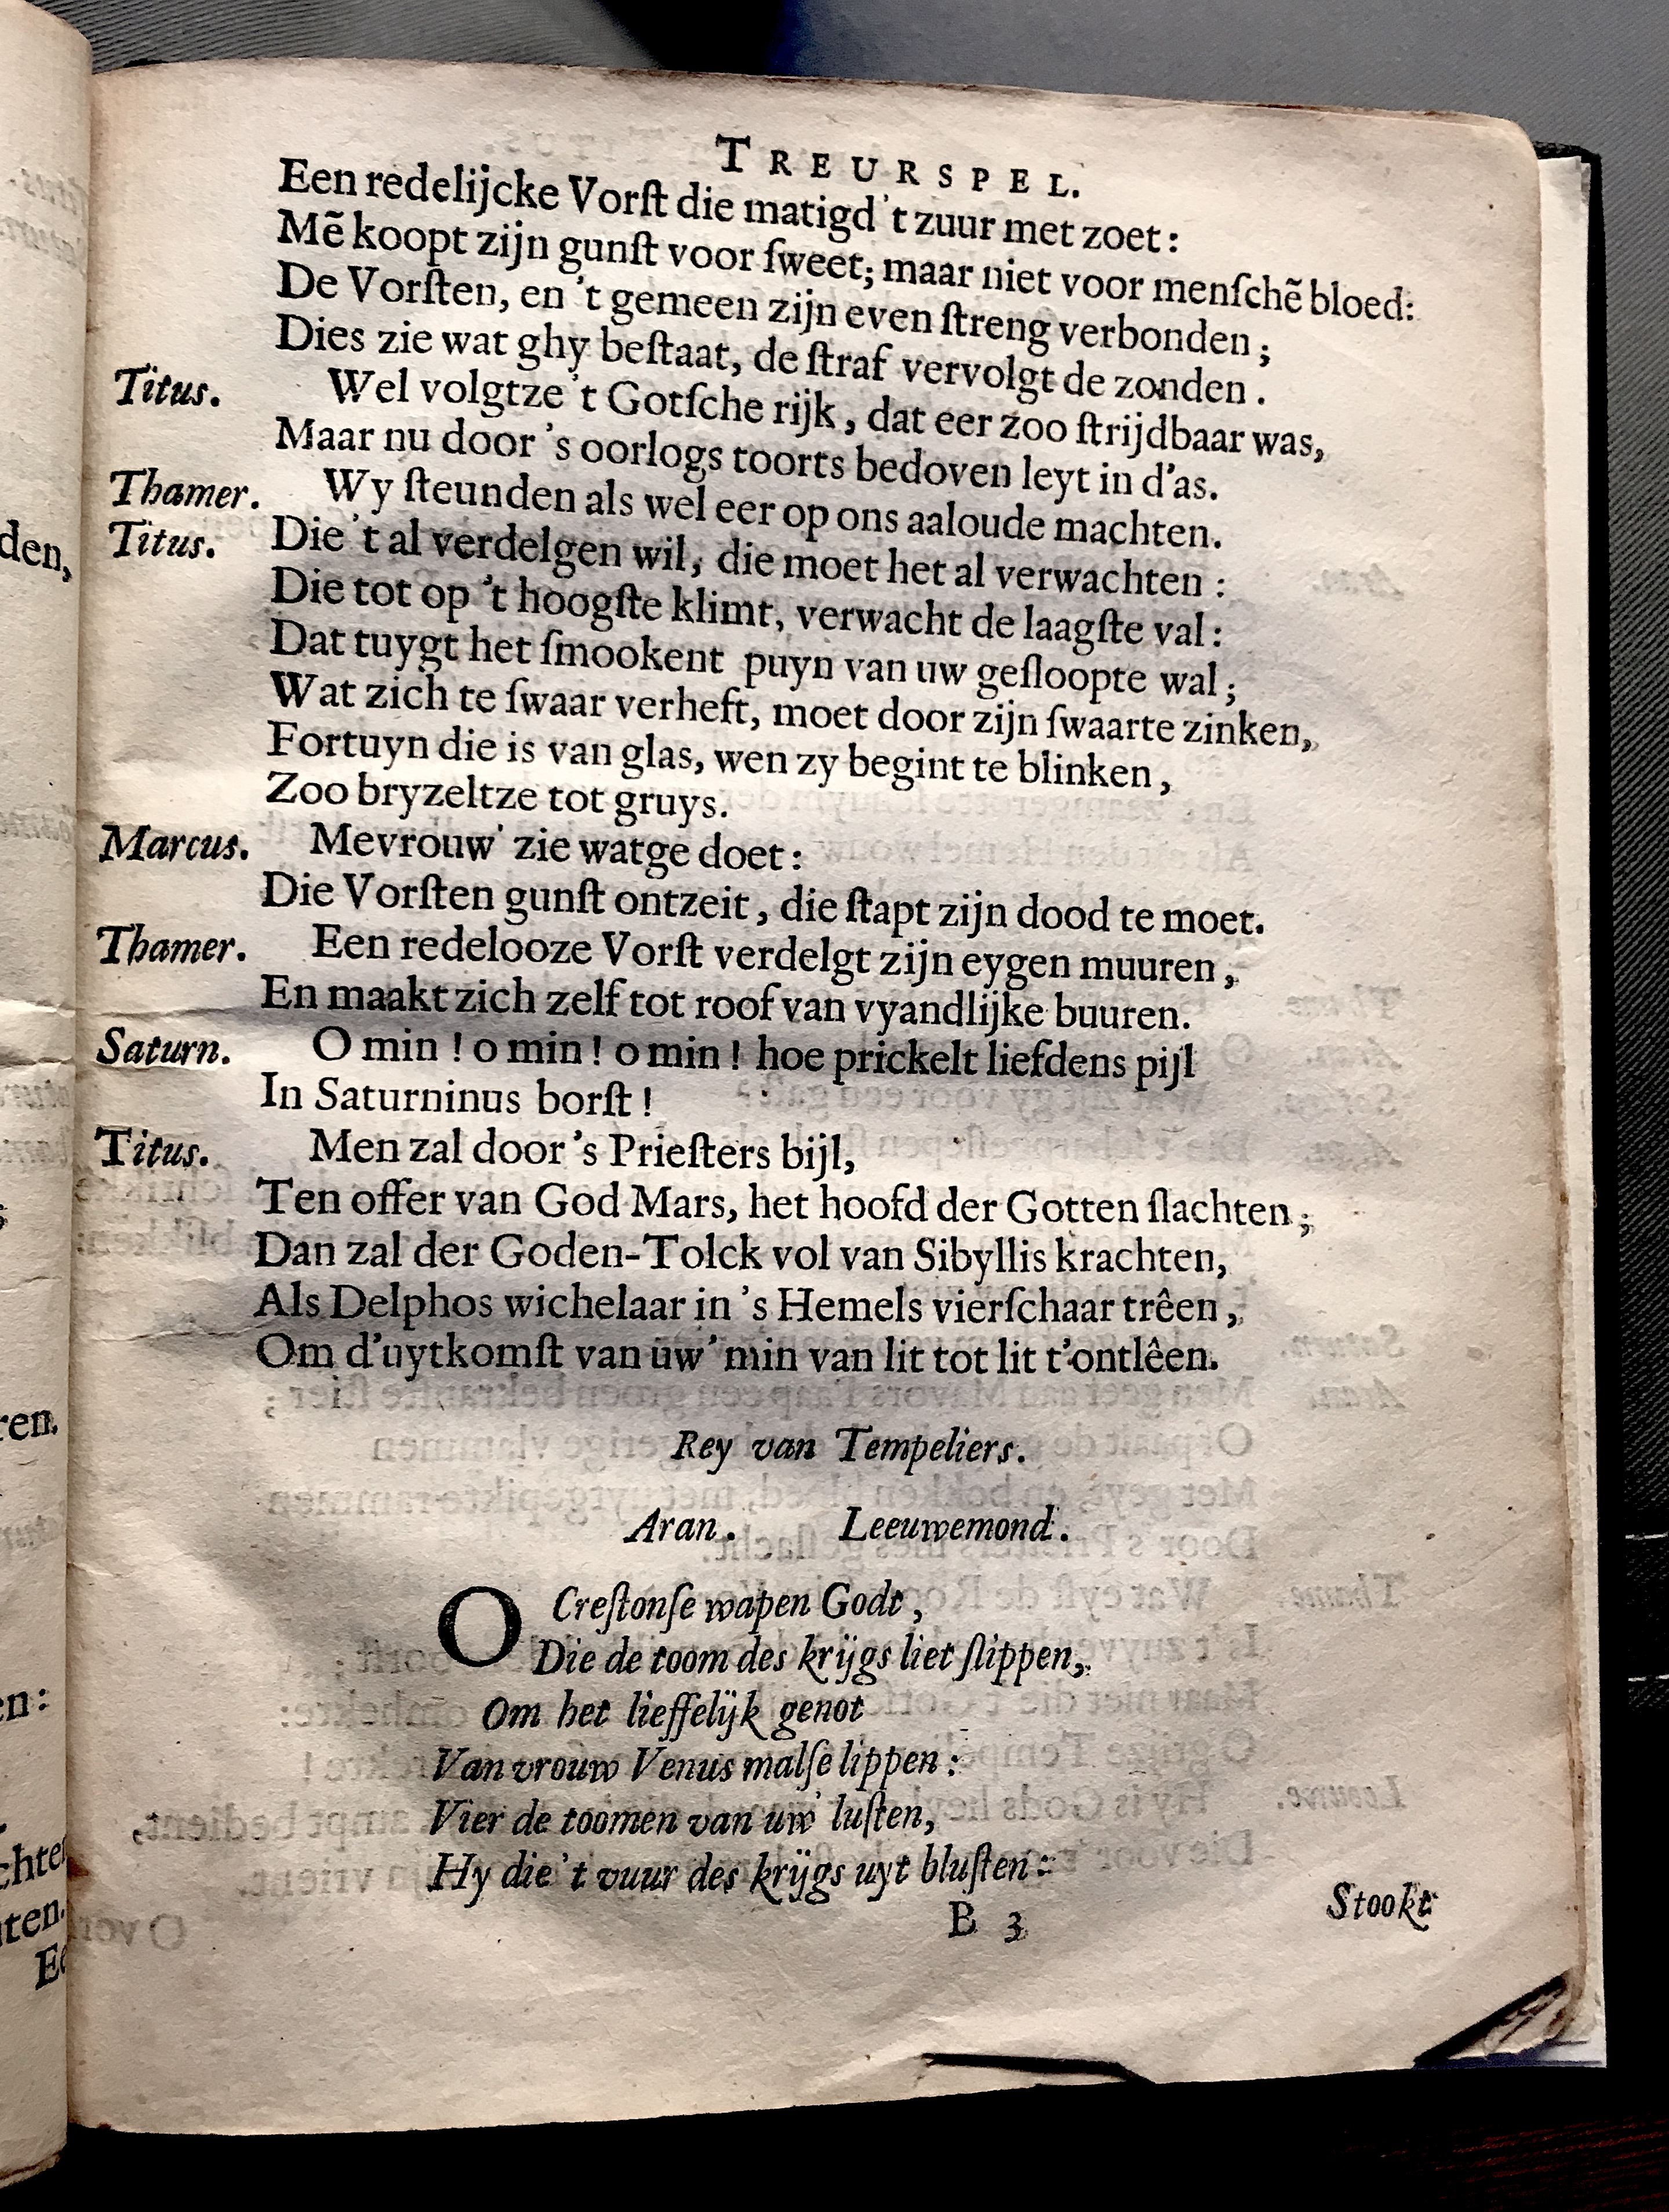 TREURSPEL.
Een redelijcke Vorſt die matigd 't zuur met zoet:
Mẽ koopt zijn gunſt voor ſweet; maar niet voor menſchẽ bloed:
De Vorſten, en 't gemeen zijn even ſtreng verbonden;
Dies zie wat ghy beſtaat, de ſtraf vervolgt de zonden.
Titus. Wel volgtze 't Gotſche rijk, dat eer zoo ſtrijdbaar was,
Maar nu door 's oorlogs toorts bedoven leyt in d'as.
Thamer. Wy ſteunden als wel eer op ons aaloude machten.
Titus. Die 't al verdelgen wil, die moet het al verwachten:
Die tot op 't hoogſte klimt, verwacht de laagſte val:
Dat tuygt het ſmookent puyn van uw geſloopte wal;
Wat zich te ſwaar verheft, moet door zijn ſwaarte zinken,
Fortuyn die is van glas, wen zy begint te blinken,
Zoo bryzeltze tot gruys.
Marcus. Mevrouw' zie watge doet:
Die Vorſten gunſt ontzeit, die ſtapt zijn dood te moet.
Thamer. Een redelooze Vorſt verdelgt zijn eygen muuren,
En maakt zich zelf tot roof van vyandlijke buuren.
Saturn. O min! o min! o min! hoe prickelt liefdens pijl
In Saturninus borſt!
Titus. Men zal door 's Prieſters bijl,
Ten offer van God Mars, het hoofd der Gotten ſlachten;
Dan zal der Goden-Tolck vol van Sibyllis krachten,
Als Delphos wichelaar in 's Hemels vierſchaar trêen,
Om d'uytkomſt van uw' min van lit tot lit t'ontlêen.
Rey van Tempeliers.
Aran. Leeuwemond.
O Creſtonſe wapen Godt,
Die de toom des krijgs liet ſlippen,
Om het lieffelijk genot
Van vrouw Venus malſe lippen:
Vier de toomen van uw' luſten,
Hy die 't vuur des krijgs uyt bluſten:
B 3 Stookt
den,
ren.
en: